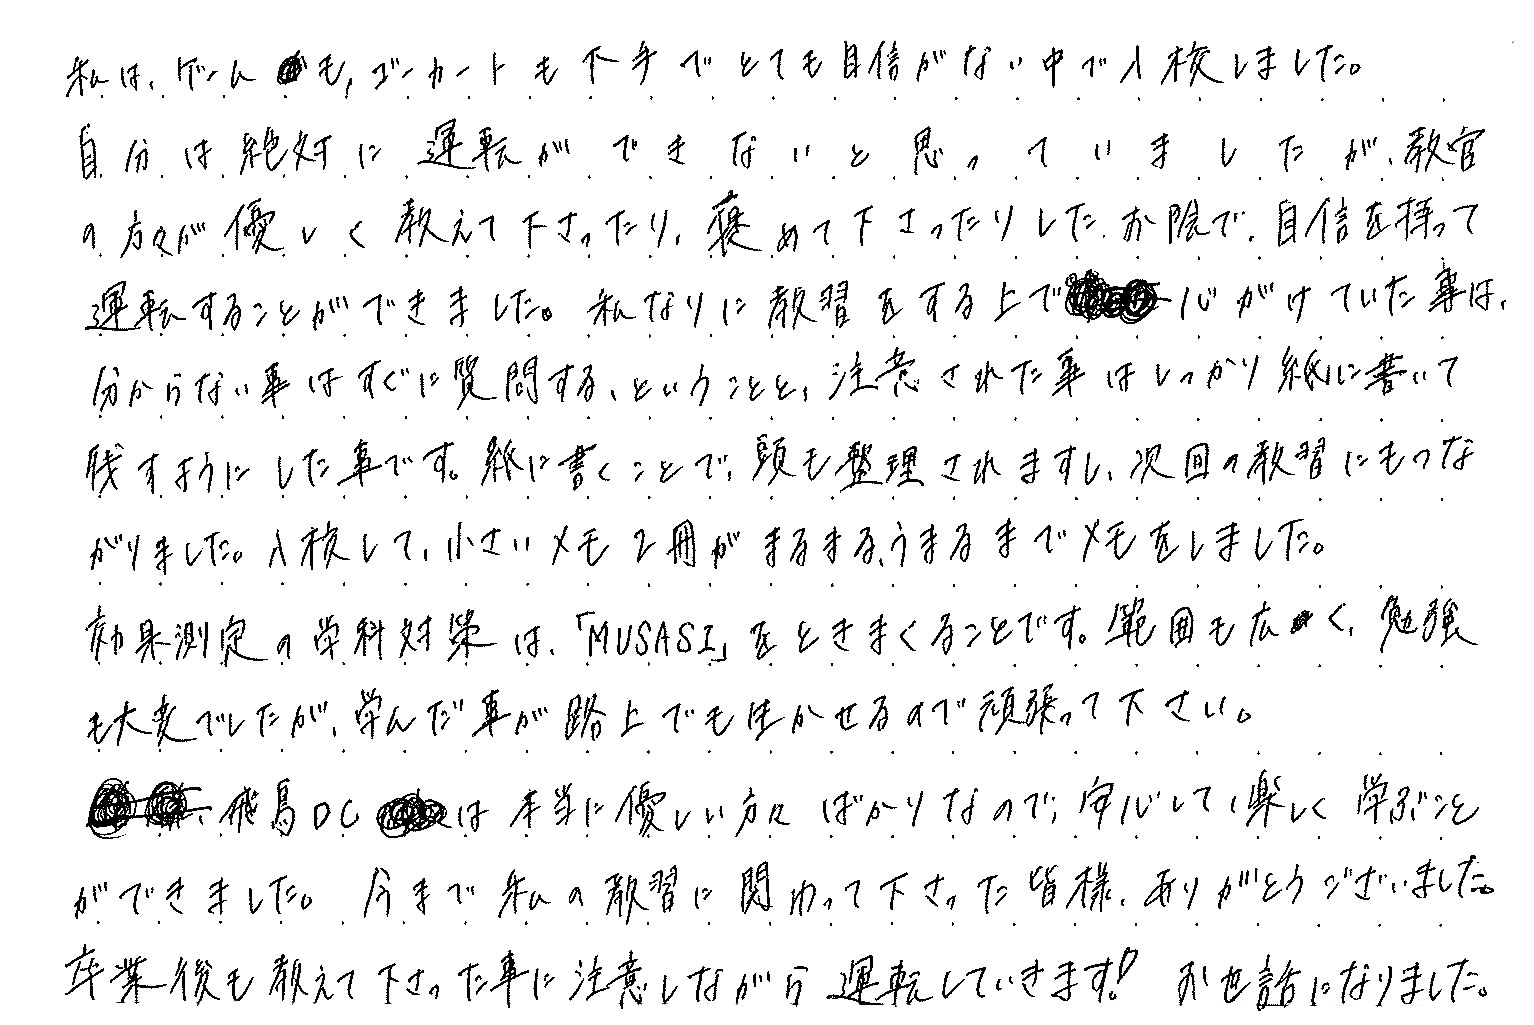 私は、ゲームも、ゴーカートも下手でとても自信がない中で入校しました。
自分は絶対に運転ができないと思っていましたが、教官
の方々が優しく教えて下さったり、褒めて下さったりしたお陰で、自信を持って
運転することができました。私なりに教習をする上で心がけていた事は、
分からない事はすぐに質問する、ということと、注意された事はしっかり紙に書いて
残すようにした事です。紙に書くことで、頭も整理されますし、次回の教習にもつな
がりました。入校して、小さいメモ2冊がまるまる、うまるまでメモをしました。
効果測定の学科対策は、「MUSASI」をときまくることです。範囲も広く、勉強
も大変でしたが、学んだ事が路上でも生かせるので頑張って下さい。
飛鳥DCは本当に優しい方々ばかりなので、安心して、楽しく学ぶこと
ができました。今まで私の教習に関わって下さった皆様、ありがとうございました。
卒業後も教えて下さった事に注意しながら運転していきます!お世話になりました。